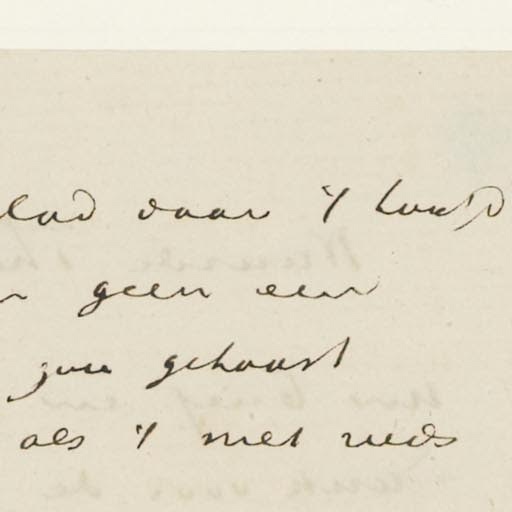 blad daar 't hoofd
geen een
zou gehoord
als 't niet reeds